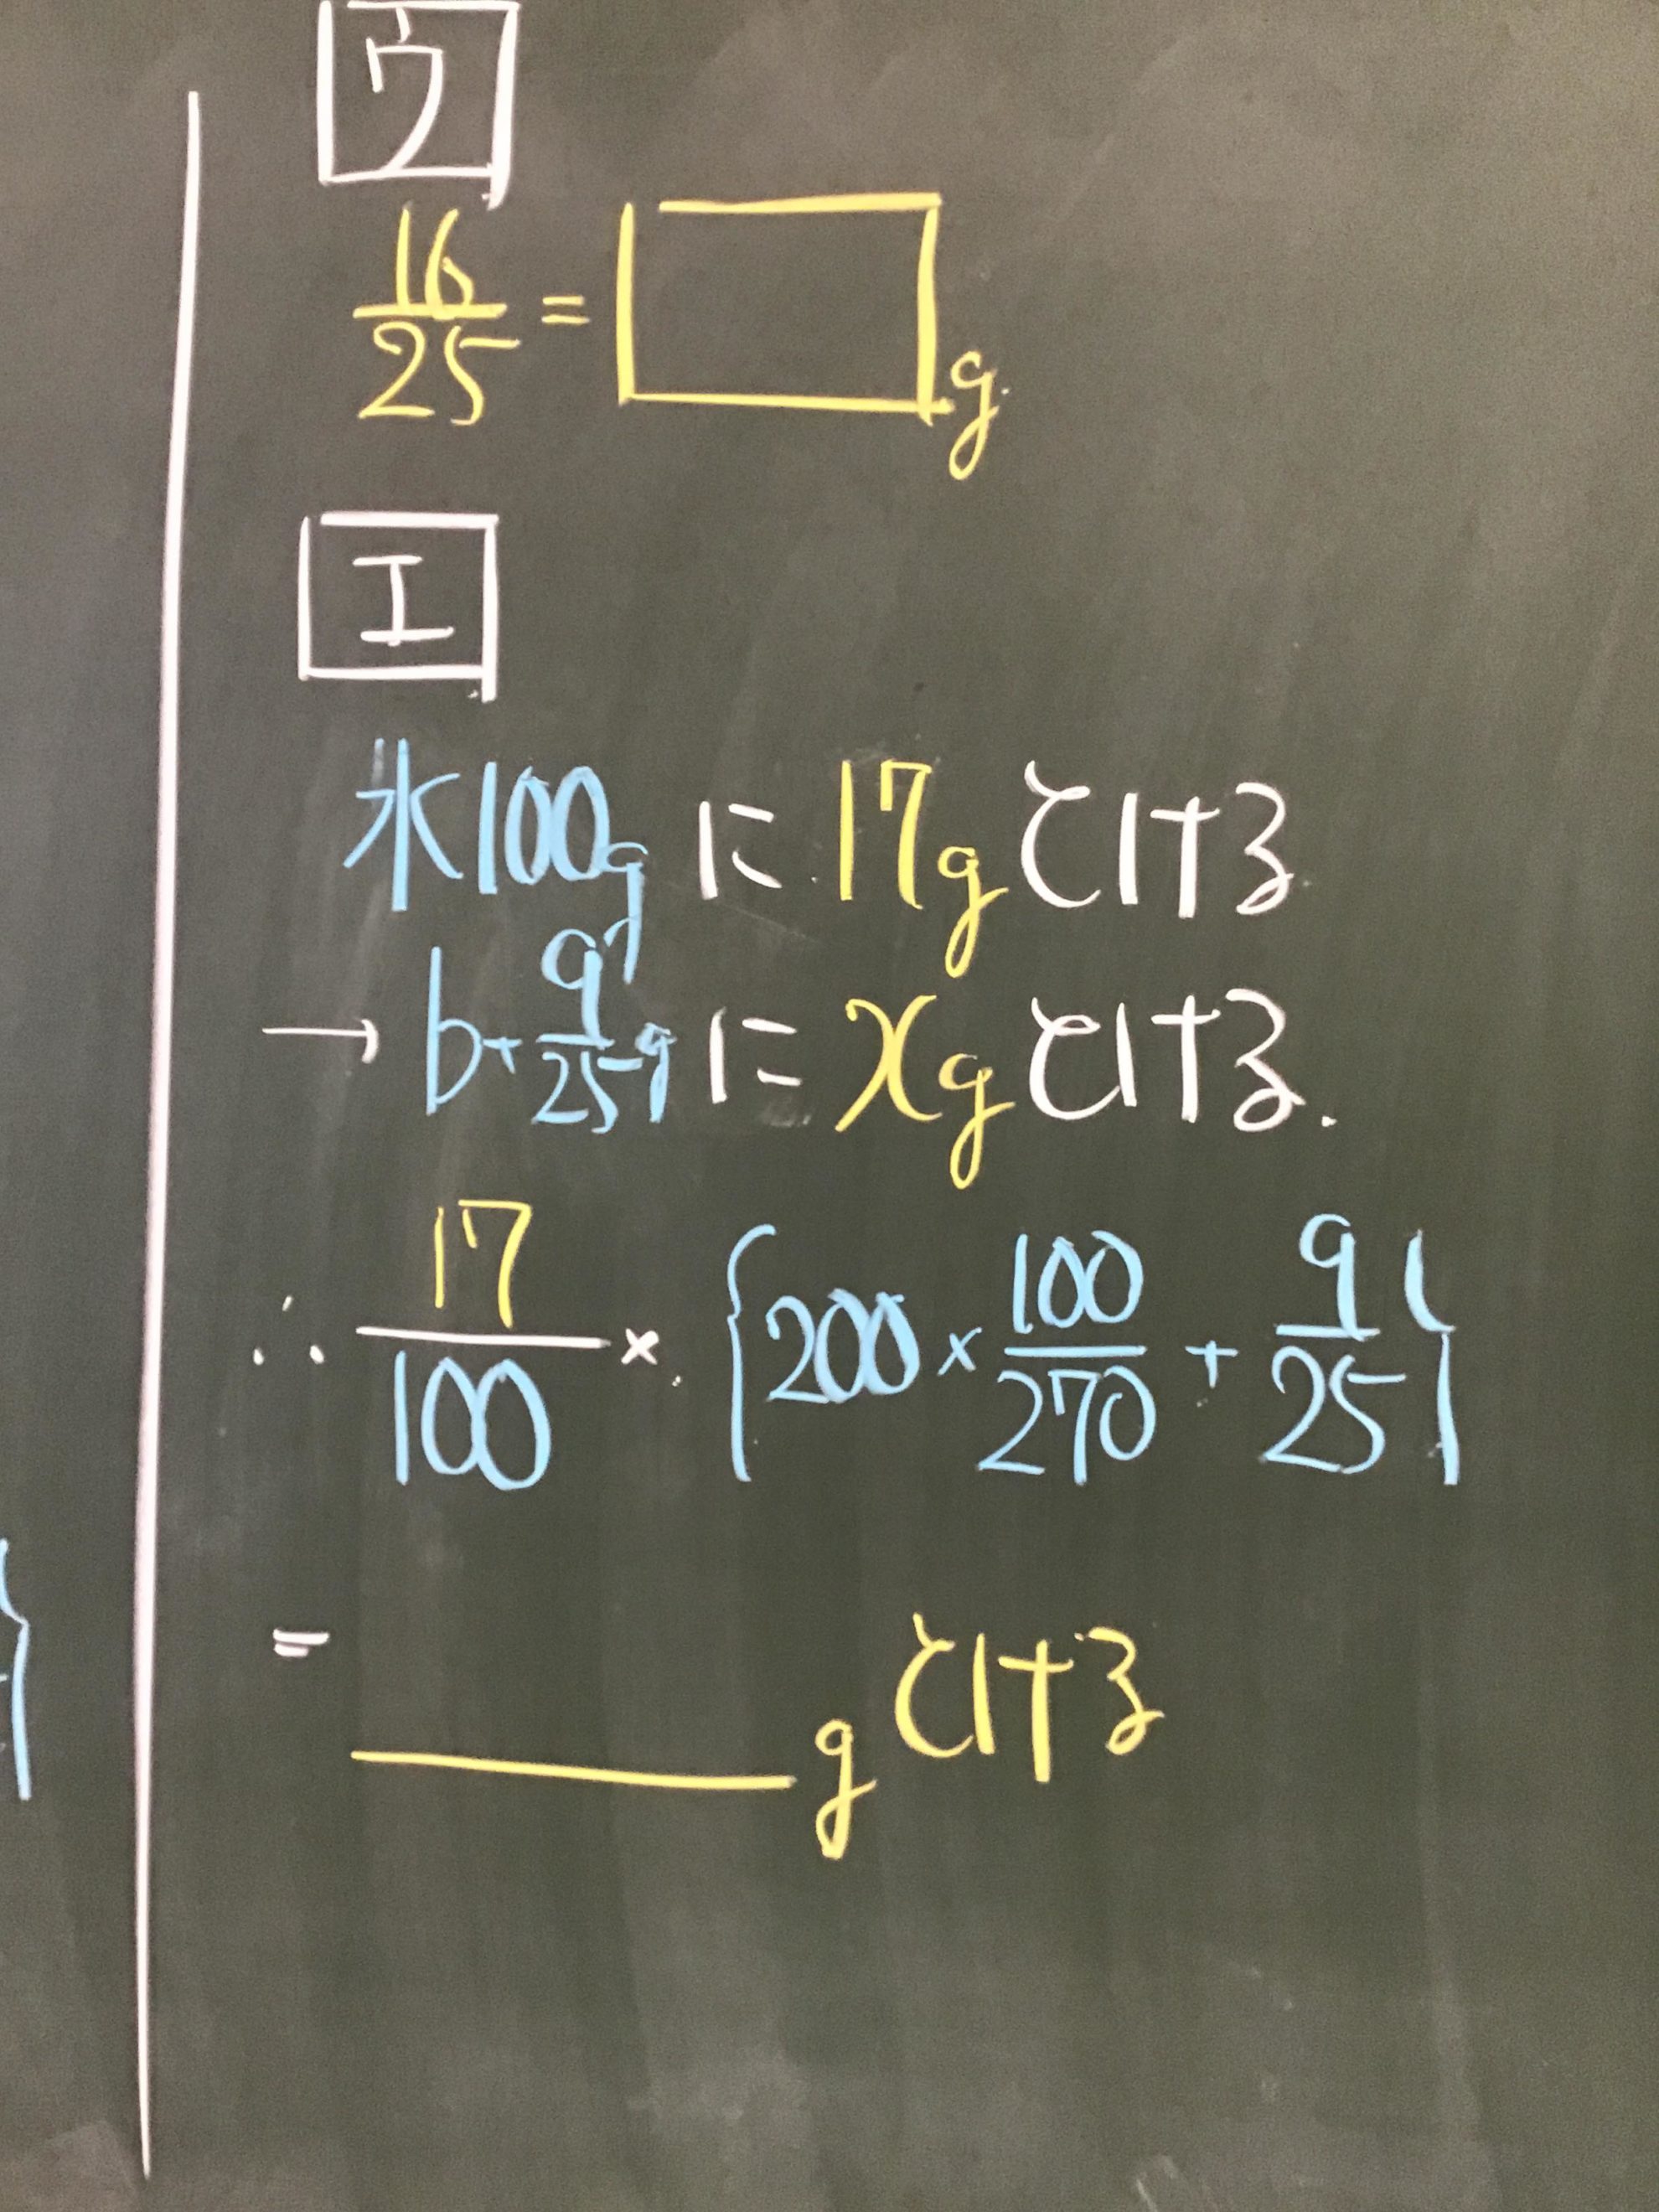 ウ
16/25 = g
エ
水100g に 17g とける
→ b+9/25 g に xg とける.
∴ 17/100 × {200 × 100/270 + 9/25}
= g とける